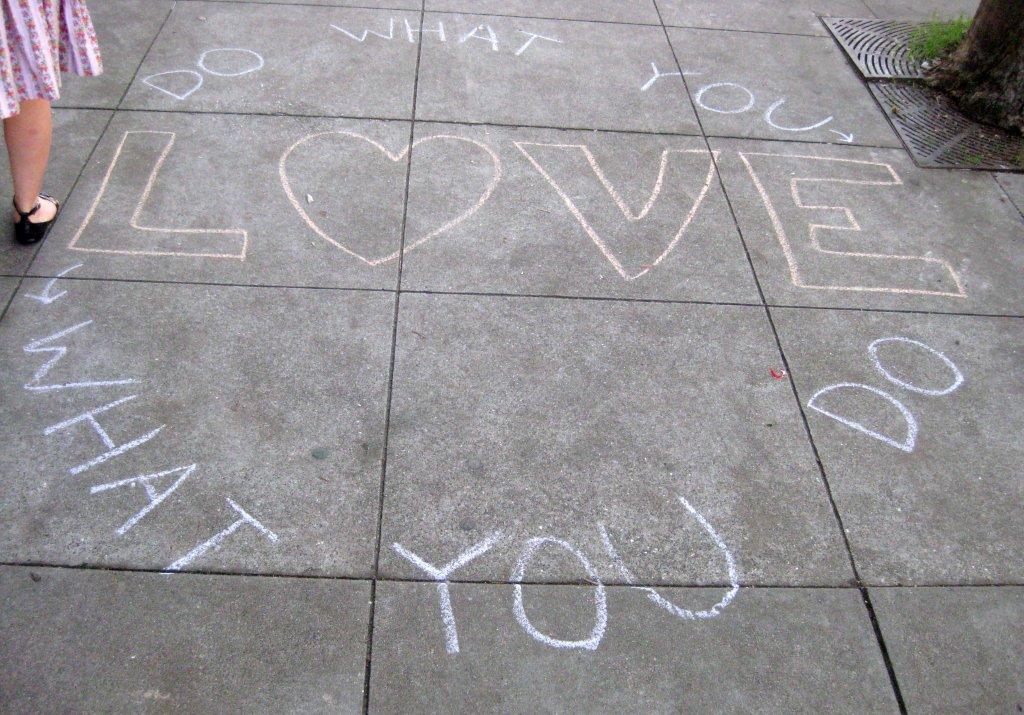 DO WHAT YOU
L♡VE
WHAT YOU DO